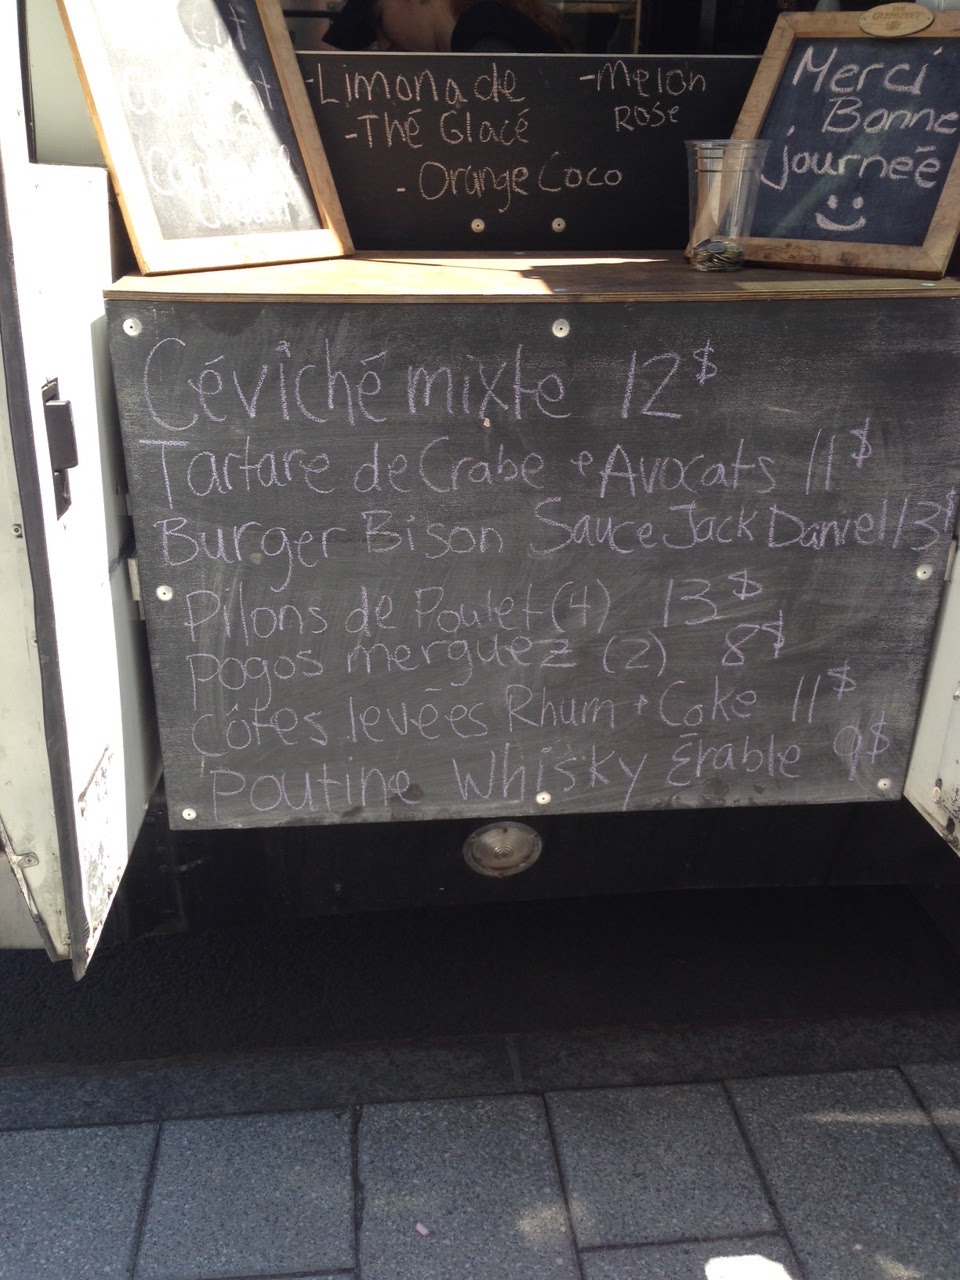 -Limonade
-Melon Rose
-Thé Glacé
-Orange Coco
THE GLENLIVET
Merci
Bonne
journeé
Céviché mixte 12$
Tartare de Crabe + Avocats 11$
Burger Bison Sauce Jack Daniel 13$
Pilons de Poulet (4) 13$
Pogos merguez (2) 8$
Côtes levées Rhum + Coke 11$
Poutine Whisky Érable 9$